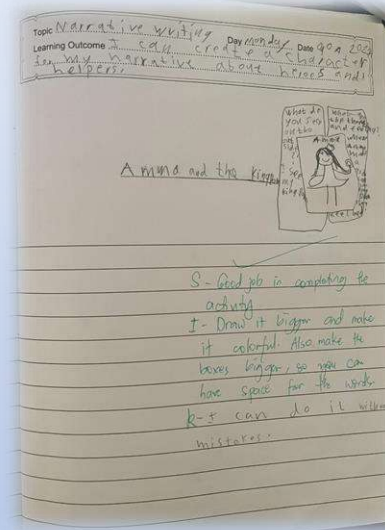 Topic Narrative writing Day Monday Date
Learning Outcome I can create a character
in my narrative about heroes and
helpers.
What do
you
on the
Amna
I see
my
Amna and the
S - Good job in completing the
activity
I - Draw it bigger and make
it colorful. Also make the
boxes bigger, so you can
have space for the words
R- I can do it
mistakes.